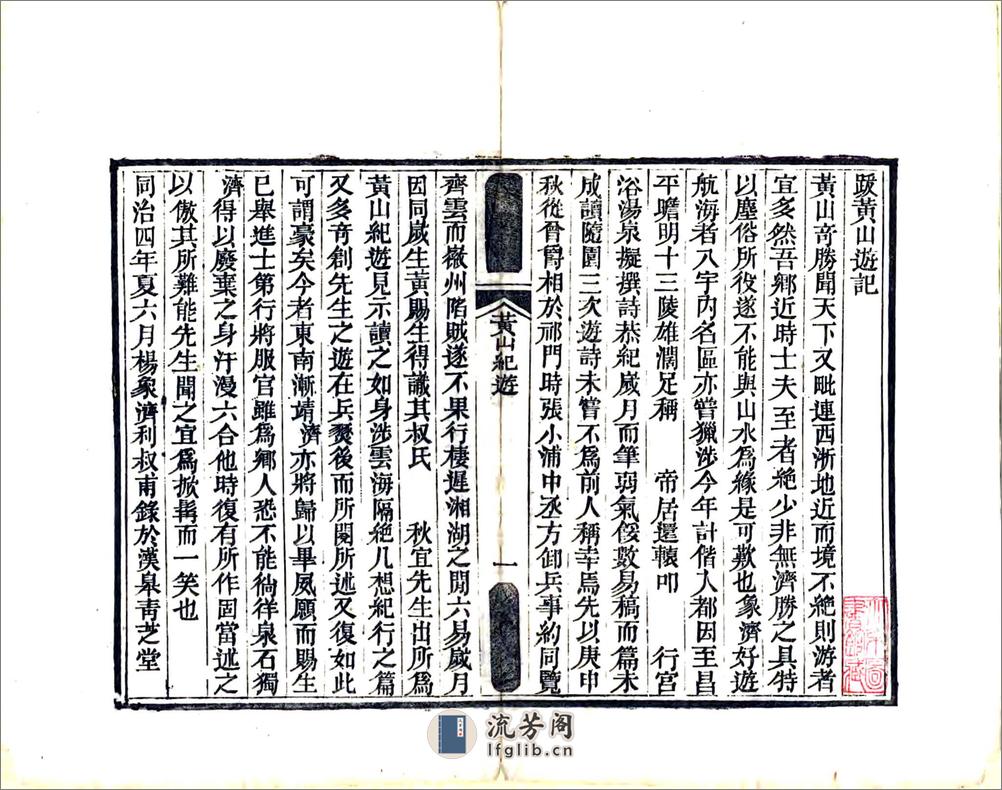 跋黃山遊記
黃山奇勝聞天下又毗連西浙地近而境不絕則游者
宜多然吾鄉近時士夫至者絕少非無濟勝之具特
以塵俗所役遂不能與山水爲緣是可歎也象濟好遊
航海者八宇內名區亦嘗獵涉今年計偕人都因至昌
平瞻明十三陵雄濶足稱 帝居還轅叩 行宮
浴湯泉擬撰詩恭紀歲月而筆弱氣餒數易稿而篇未
成讀隨園三次遊詩未嘗不爲前人稱幸焉先以庚申
秋從曾爵相於祁門時張小浦中丞方卸兵事約同覽
黃山紀遊
一
齊雲而徽州陷賊遂不果行棲遲湘湖之閒六易歲月
因同歲生黃賜生得識其叔氏 秋宜先生出所爲
黃山紀遊見示讀之如身涉雲海隔絕几想紀行之篇
又多奇創先生之遊在兵燹後而所閱所述又復如此
可謂豪矣今者東南漸靖濟亦將歸以畢夙願而賜生
已舉進士第行將服官雖爲鄉人恐不能徜徉泉石獨
濟得以廢棄之身汗漫六合他時復有所作固當述之
以傲其所難能先生聞之宜爲掀髯而一笑也
同治四年夏六月楊象濟利叔甫錄於漢皋靑芝堂
流芳阁
lfglib.cn